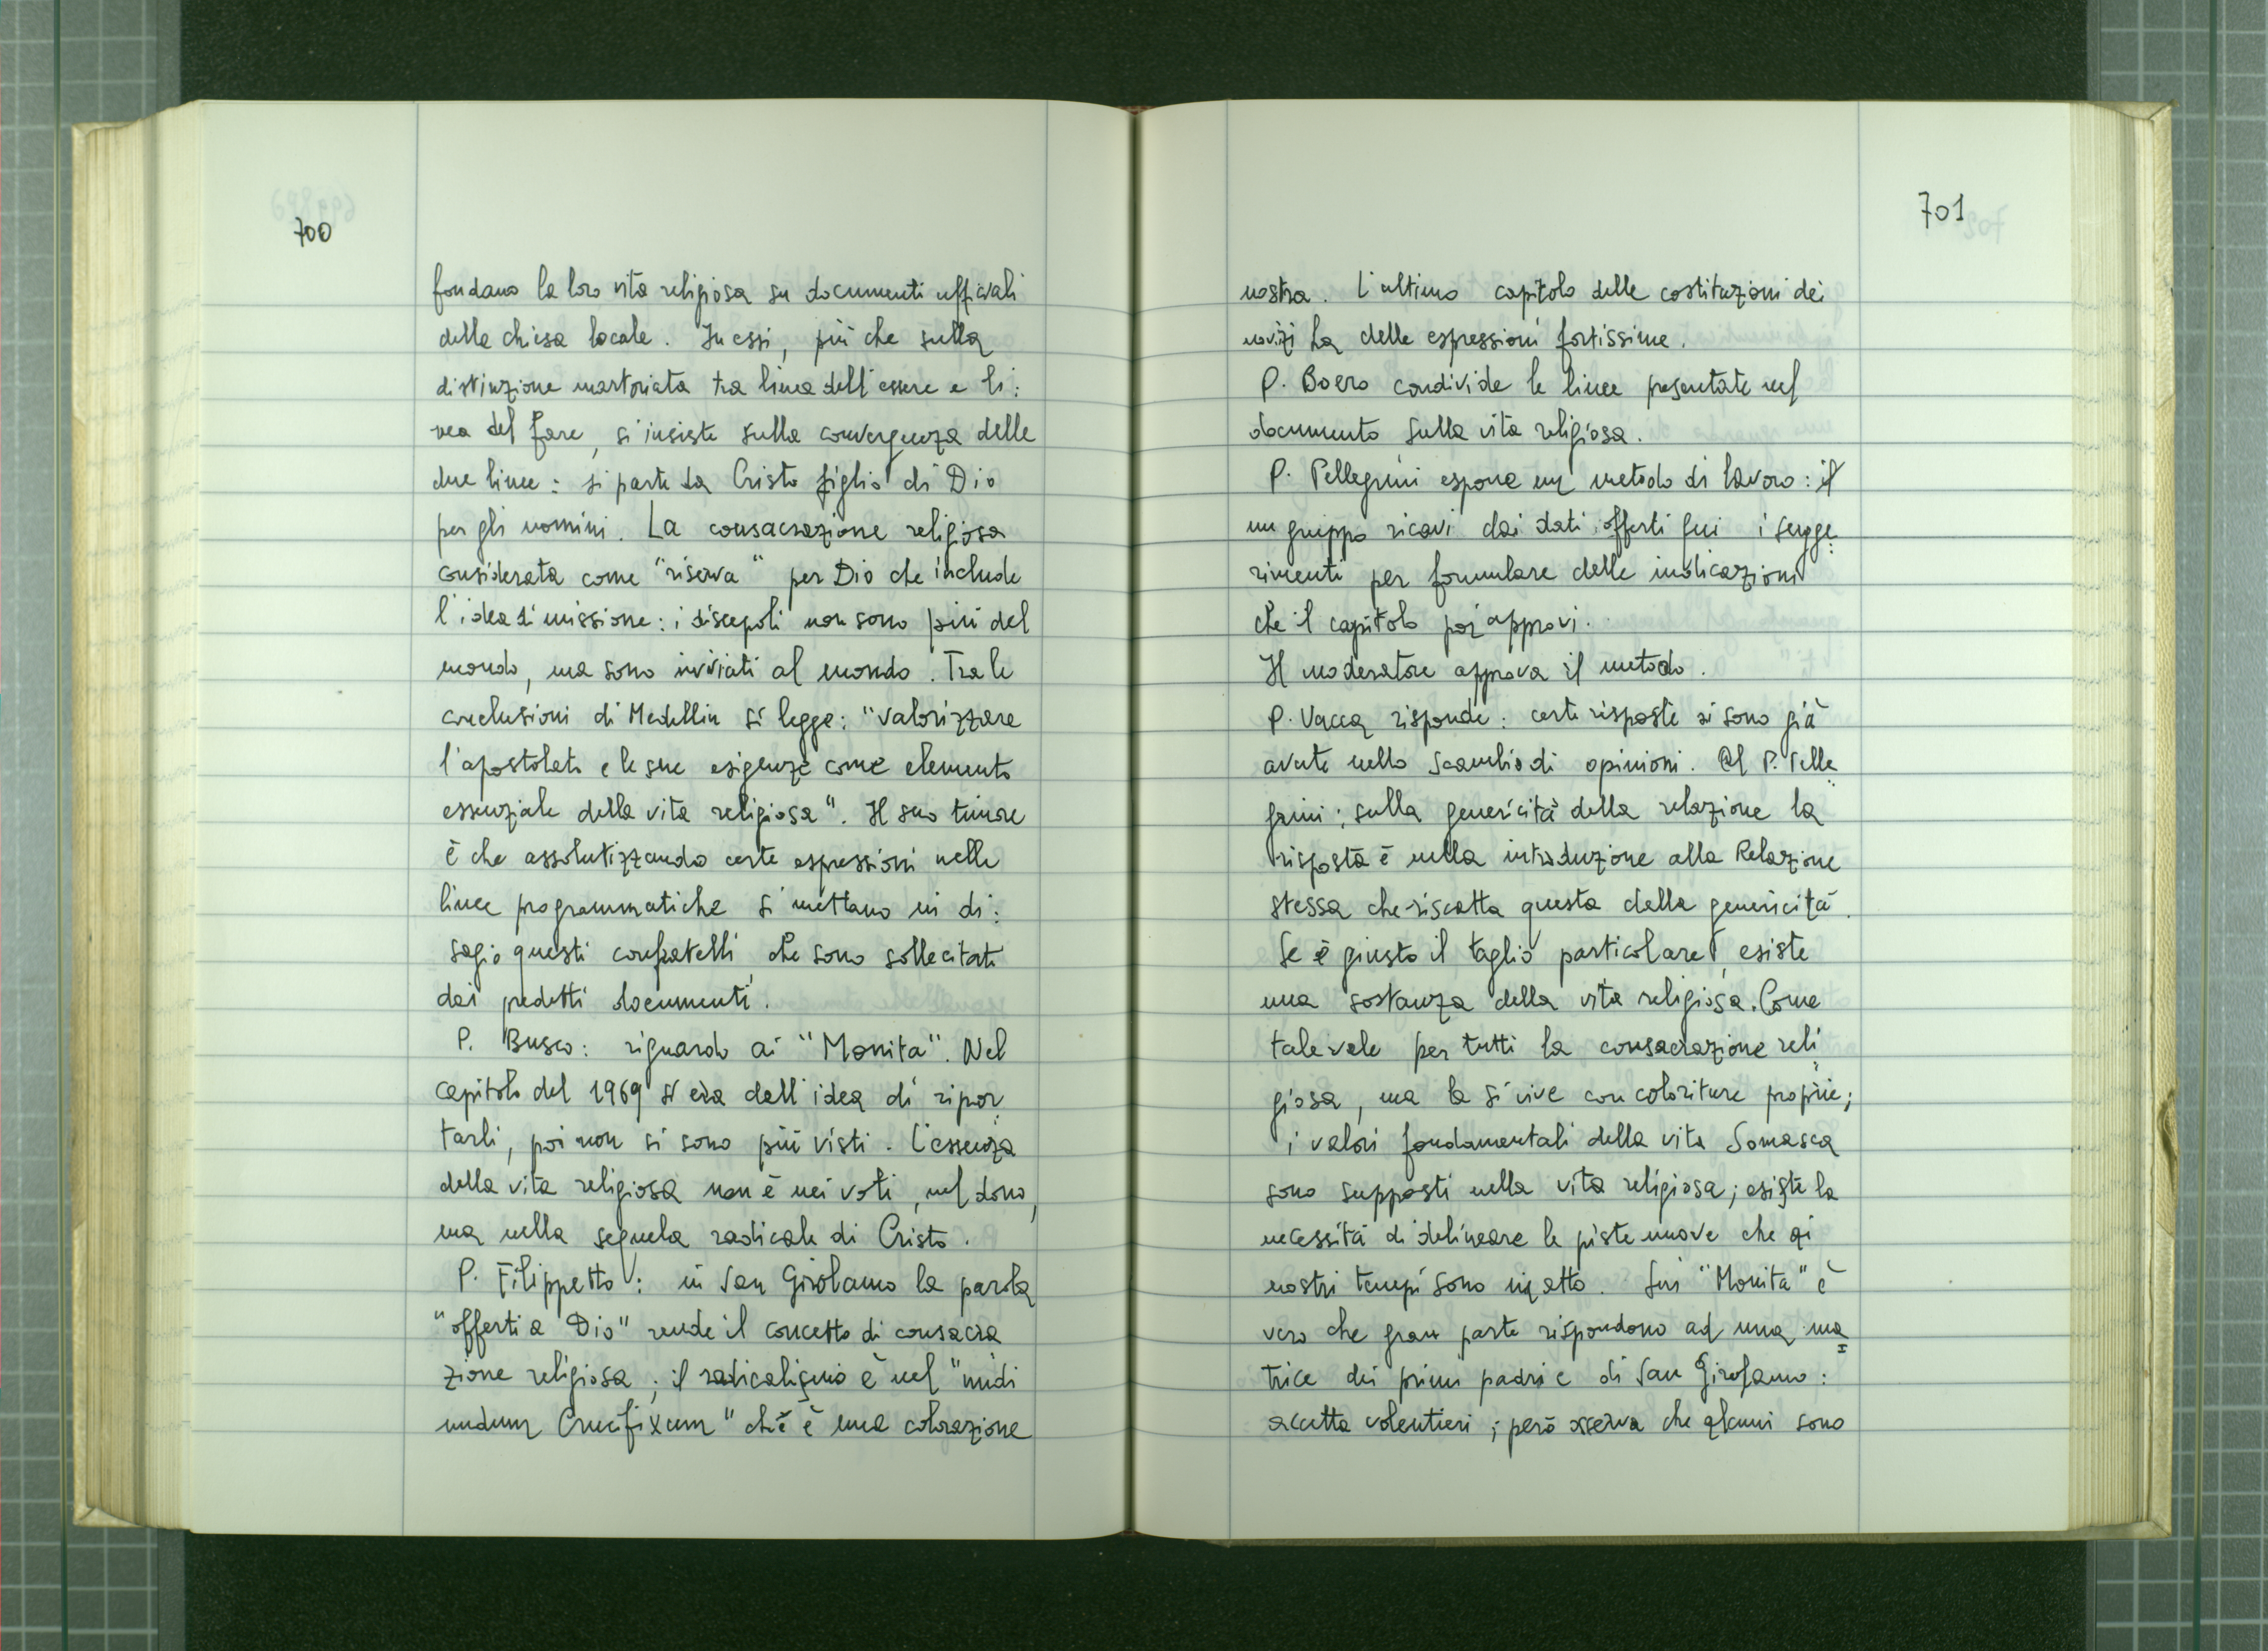 700
fondano la loro vita religiosa su documenti ufficiali
della chiesa locale. In essi, più che sulla
distinzione martoriata tra linea dell'essere e li:
nea del fare, si insiste sulla convergenza delle
due linee: si parte da Cristo figlio di Dio
per gli uomini. La consacrazione religiosa
considerata come "riserva" per Dio che include
l'idea di missione: i discepoli non sono più del
mondo, ma sono inviati al mondo. Tra le
conclusioni di Medellin si legge: "valorizzare
l'apostolato e le sue esigenze come elemento
essenziale della vita religiosa". Il suo timore
è che assolutizzando certe espressioni nelle
linee programmatiche si mettano in di:
sagio questi confratelli, che sono sollecitati
dai predetti documenti.
P. Busco: riguardo ai "Monita". Nel
capitolo del 1969 si era dell'idea di ripor
tarli, poi non si sono più visti. L'essenza
della vita religiosa non è nei voti, nel dono,
ma nella sequela radicale di Cristo.
P. Filippetto: in San Girolamo la parola
"offerti a Dio" rende il concetto di consacra
zione religiosa; il radicalismo è nel "nudi
nudum Crucifixum" che è una colorazione
701
nostra. L'ultimo capitolo delle costituzioni dei
novizi ha delle espressioni fortissime.
P. Boero condivide le linee presentate nel
documento sulla vita religiosa.
P. Pellegrini espone un metodo di lavoro: il
un gruppo ricavi dai dati offerti qui i sugge
rimenti per formulare delle indicazioni
che il capitolo poi approvi.
Il moderatore approva il metodo.
P. Vacca risponde: certe risposte si sono già
avute nello scambio di opinioni. Al P. Pelle
grini; sulla genericità della relazione la
risposta è nella introduzione alla Relazione
stessa che riscatta questa della genericità.
Se è giusto il taglio particolare, esiste
una sostanza della vita religiosa. Come
tale vale per tutti la consacrazione reli
giosa, ma la si vive con coloriture proprie;
i valori fondamentali della vita Somasca
sono supposti nella vita religiosa; esiste la
necessità di delineare le piste nuove che ai
nostri tempi sono in atto. Sui "Monita" è
vero che gran parte rispondono ad una ma
trice dei primi padri e di San Girolamo:
accetta volentieri; però osserva che alcuni sono